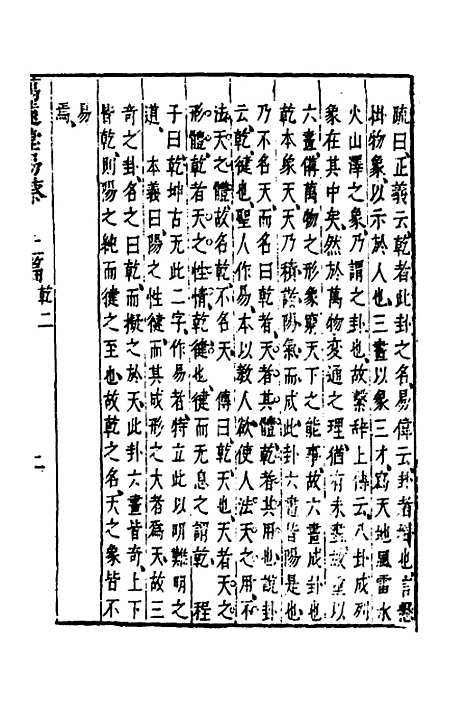 疏曰、正義云、乾者此卦之名、易偉云、卦者掛也、言懸
掛物象、以示於人也、三畫以象三才、寫天地風雷水
火山澤之象、乃謂之卦也、故繫辭上傳云、八卦成列
象在其中矣、然於萬物變通之理、猶有未盡、故重以
六畫、備萬物之形象、窮天下之能事、故六畫成卦也
乾本象天、天乃積諸陽氣而成、此卦六畫皆陽、是也
乃不名天、而名曰乾者、天者其體、乾者其用也、說卦
云、乾、健也、聖人作易、本以教人、欲使人法天之用、不
法天之體、故名乾、不名天、　傳曰、乾、天也、天者天之
形體、乾者天之性情、乾、健也、健而無息之謂乾　程
子曰、乾坤古無此二字、作易者特立此以明難明之
道、　本義曰、陽之性健、而其成形之大者為天、故三
奇之卦、名之曰乾、而擬之於天、此卦六畫皆奇、上下
皆乾、則陽之純而健之至也、故乾之名、天之象、皆不
易
焉、
上篇 乾 二
二